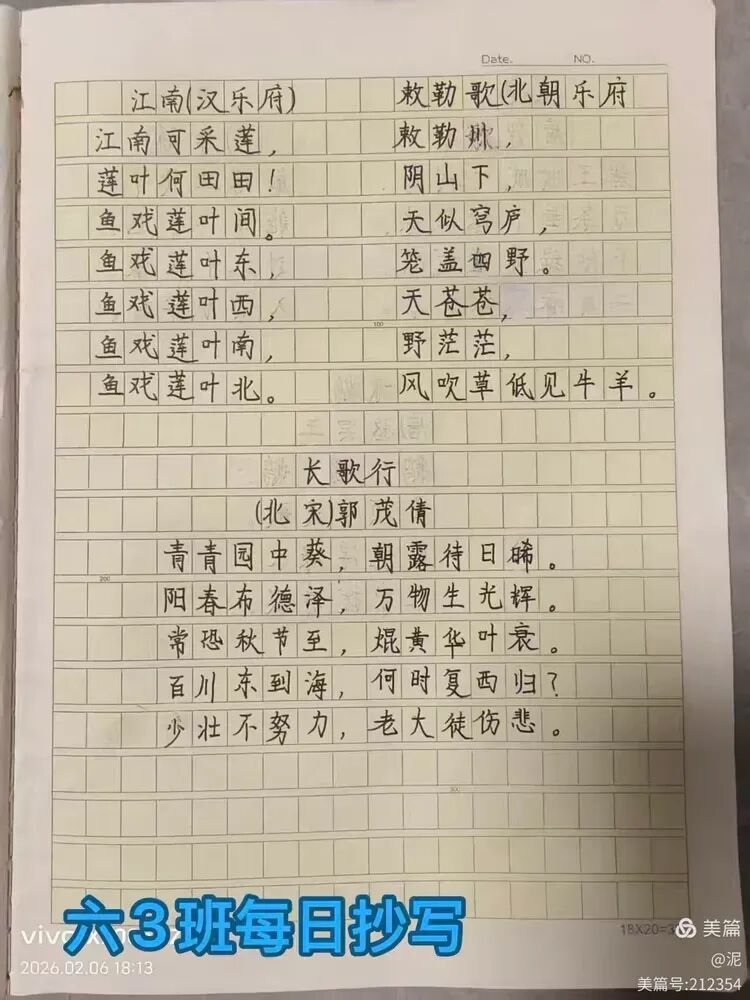 Date. NO.
江南(汉乐府)
江南可采莲,
莲叶何田田!
鱼戏莲叶间。
鱼戏莲叶东,
鱼戏莲叶西,
鱼戏莲叶南,
鱼戏莲叶北。
敕勒歌(北朝乐府
敕勒川,
阴山下,
天似穹庐,
笼盖四野。
天苍苍,
100
野茫茫,
风吹草低见牛羊。
长歌行
(北宋)郭茂倩
青青园中葵,朝露待日晞。
200
阳春布德泽,万物生光辉。
常恐秋节至,焜黄华叶衰。
百川东到海,何时复西归?
少壮不努力,老大徒伤悲。
300
六3班每日抄写
vivo
2026.02.06 18:13
18X20=3
美篇
@泥
美篇号:212354